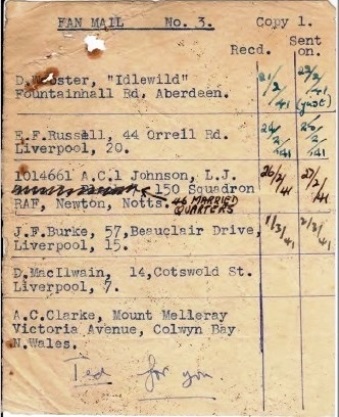 FAN MAIL No. 3. Copy 1.
Recd. Sent on.
D. Webster, "Idlewild"
Fountainhall Rd, Aberdeen.
21/2/41 23/2/41
E.F.Russell, 44 Orrell Rd.
Liverpool, 20.
1014661 A.C.1 Johnson, L.J.
150 Squadron
RAF, Newton, Notts. 46 MARRIED QUARTERS
26/2/41 27/2/41
J.F.Burke, 57,Beauclair Drive,
Liverpool, 15.
1/3/41 2/3/41
D.MacIlwain, 14,Cotswold St.
Liverpool, 7.
A.C.Clarke, Mount Melleray
Victoria Avenue, Colwyn Bay
N.Wales.
Ted for you